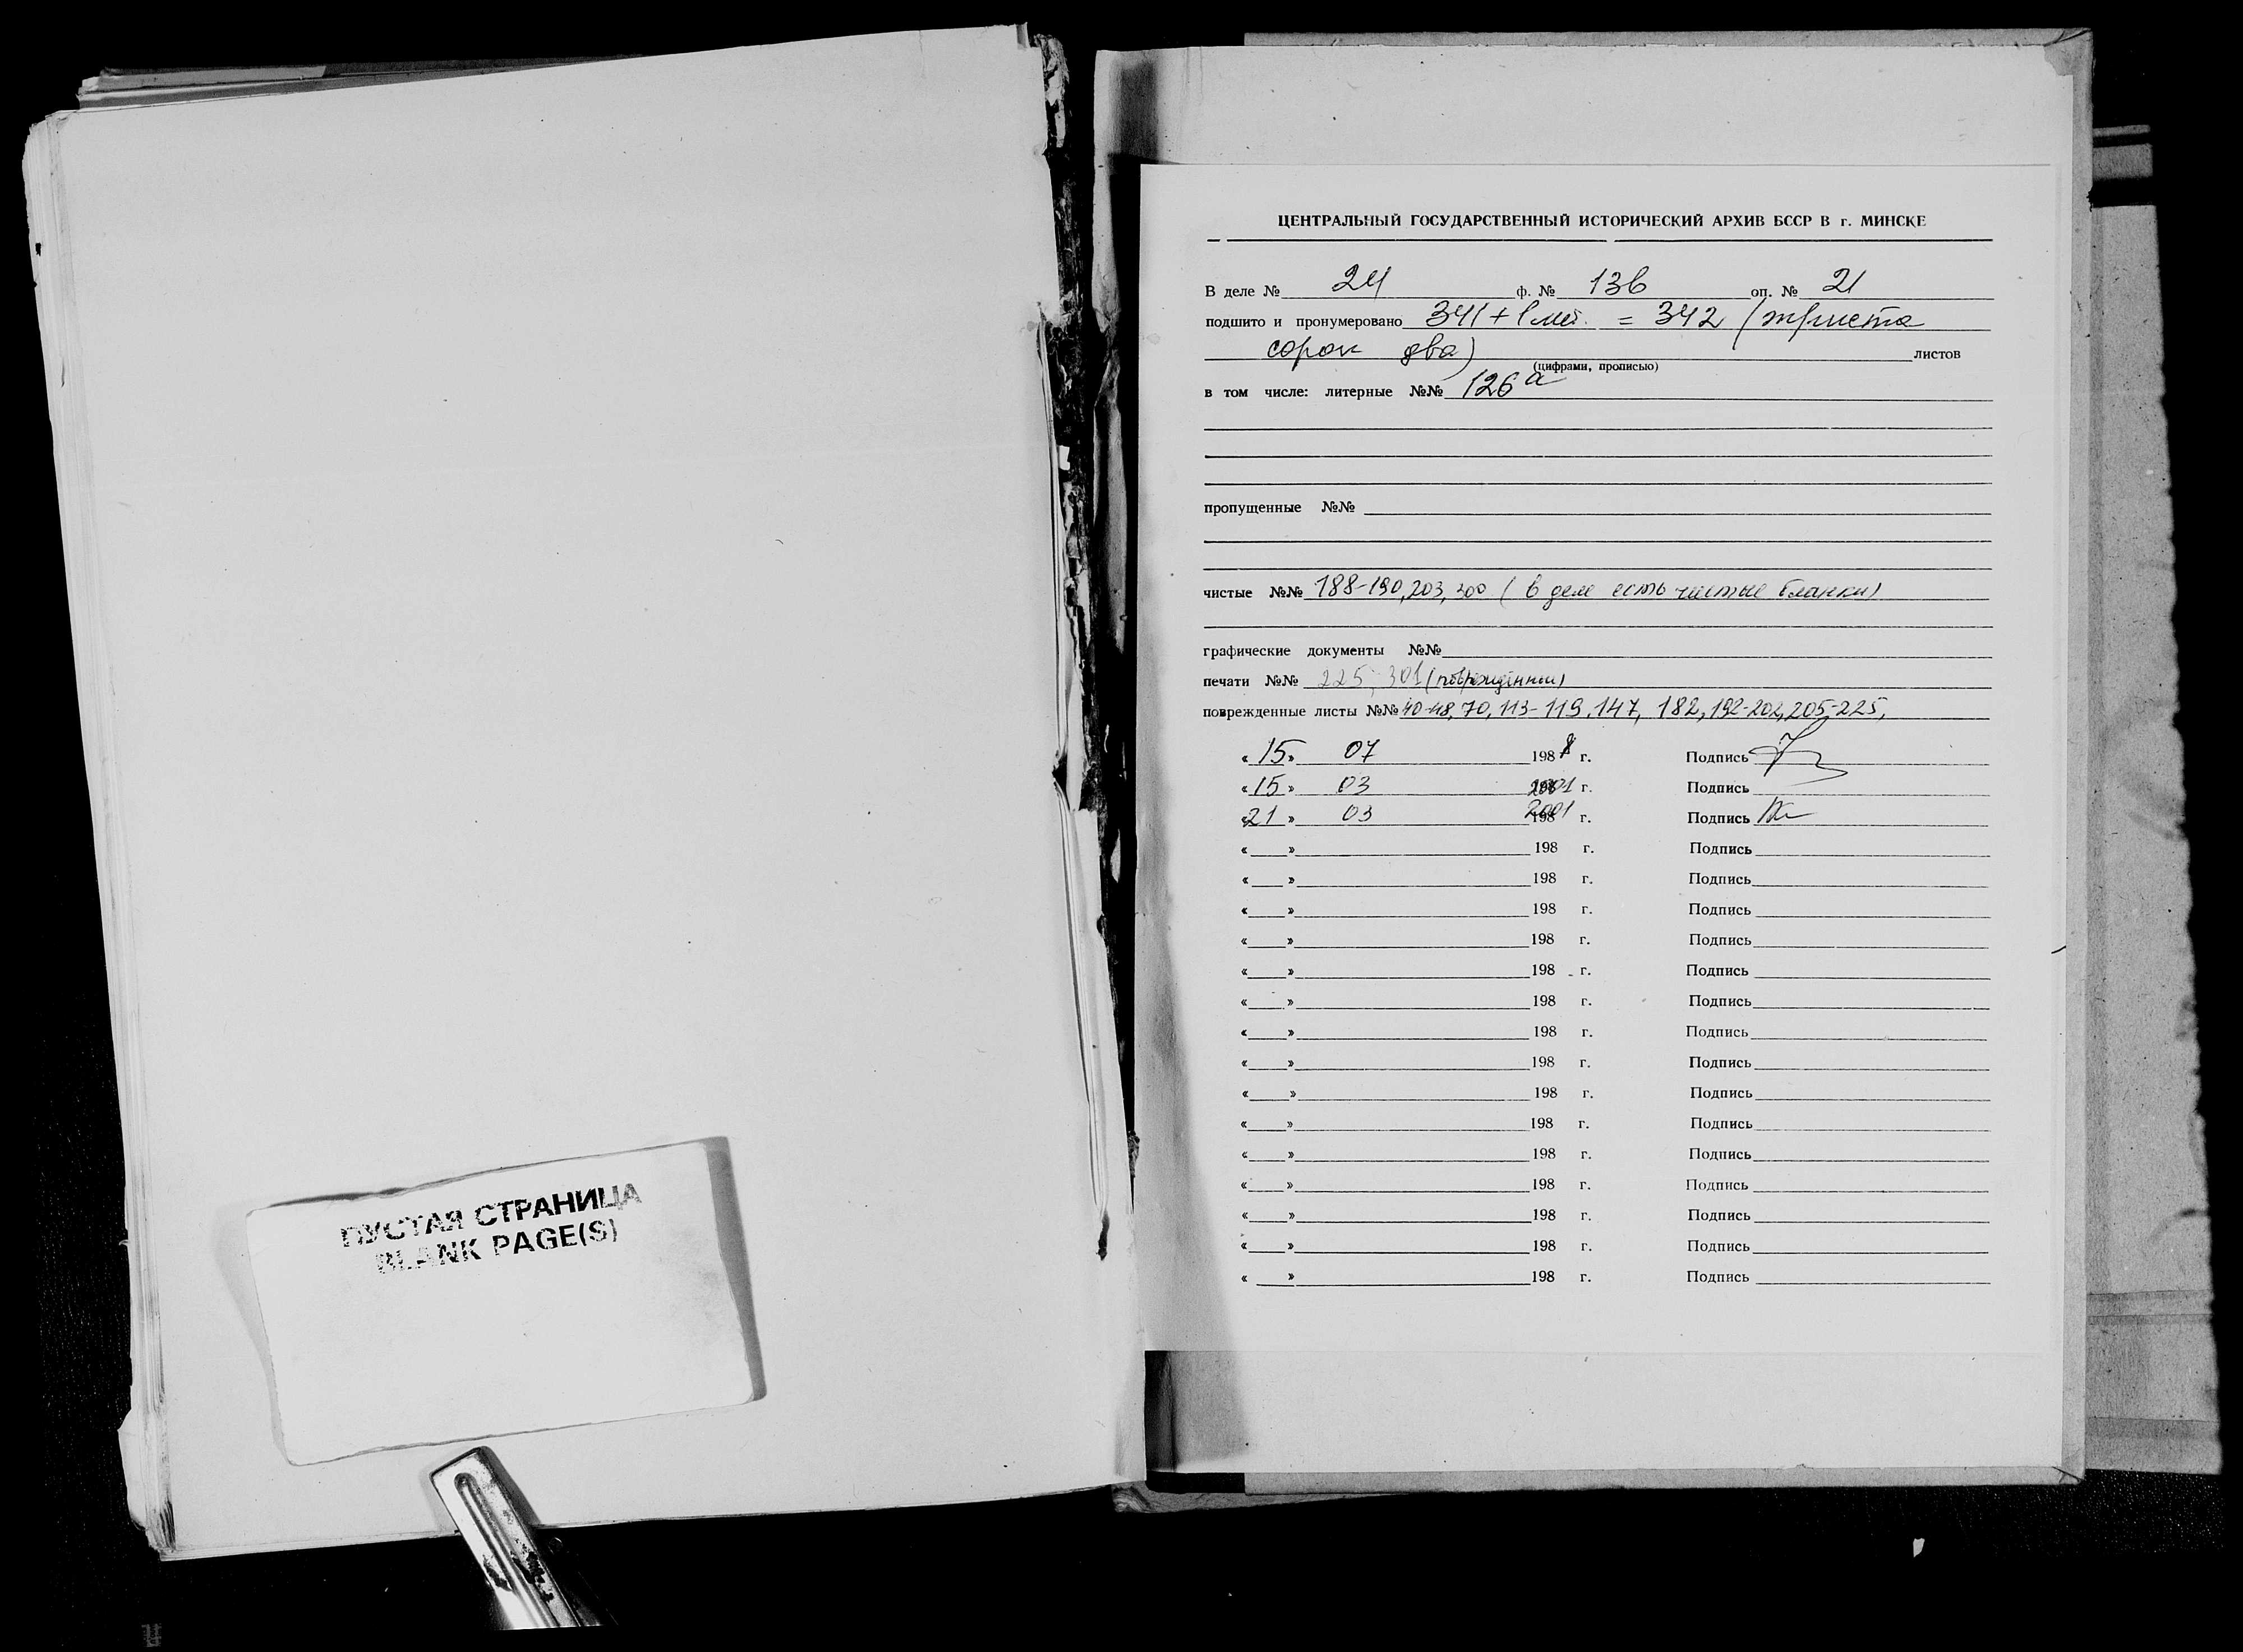 ПУСТАЯ СТРАНИЦА
BLANK PAGE(S)
ЦЕНТРАЛЬНЫЙ ГОСУДАРСТВЕННЫЙ ИСТОРИЧЕСКИЙ АРХИВ БССР В г. МИНСКЕ
В деле № 24 ф. № 136 оп. № 21
подшито и пронумеровано 341 + 1 лит. = 342 (триста
сорок два) листов
(цифрами, прописью)
в том числе: литерные №№ 126а
пропущенные №№
чистые №№ 188-190, 203, 300 (в деле есть чистые бланки)
графические документы №№
печати №№ 225, 301 (повреждённые)
поврежденные листы №№ 40-48, 70, 113-119, 147, 182, 192-202, 205-225,
« 15 » 07 198 г. Подпись
« 15 » 03 2001 г. Подпись
« 21 » 03 2001 198 г. Подпись
« » 198 г. Подпись
« » 198 г. Подпись
« » 198 г. Подпись
« » 198 г. Подпись
« » 198 г. Подпись
« » 198 г. Подпись
« » 198 г. Подпись
« » 198 г. Подпись
« » 198 г. Подпись
« » 198 г. Подпись
« » 198 г. Подпись
« » 198 г. Подпись
« » 198 г. Подпись
« » 198 г. Подпись
« » 198 г. Подпись